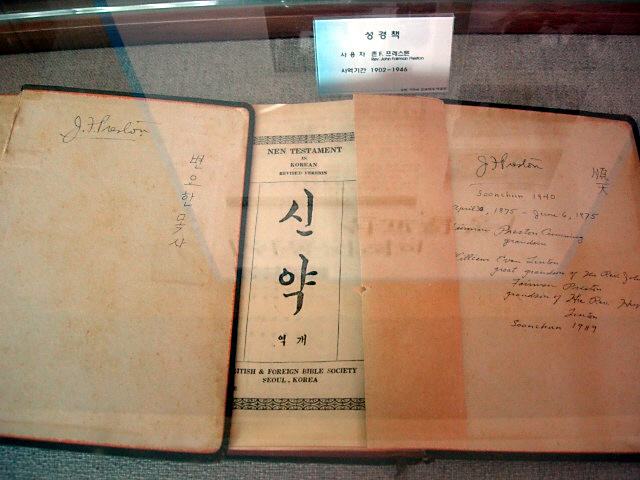 성경책
사 용 자 존 F. 프레스톤
Rev. John Fairman Preston
사역기간 1902~1946
J. F. Preston
변요한 목사
NEN TESTAMENT
IN
KOREAN
REVISED VERSION
신약
역개
ITISH & FOREIGN BIBLE SOCIETY
SEOUL, KOREA
J F Preston
順天
Soonchun 1940
April 30, 1875 - June 6, 1975
Preston Cumming
grandson
William Evan Linton
great grandson of the Rev. John
Fairman Preston
grandson of the Rev. Hugh
Linton
Soonchun 1989